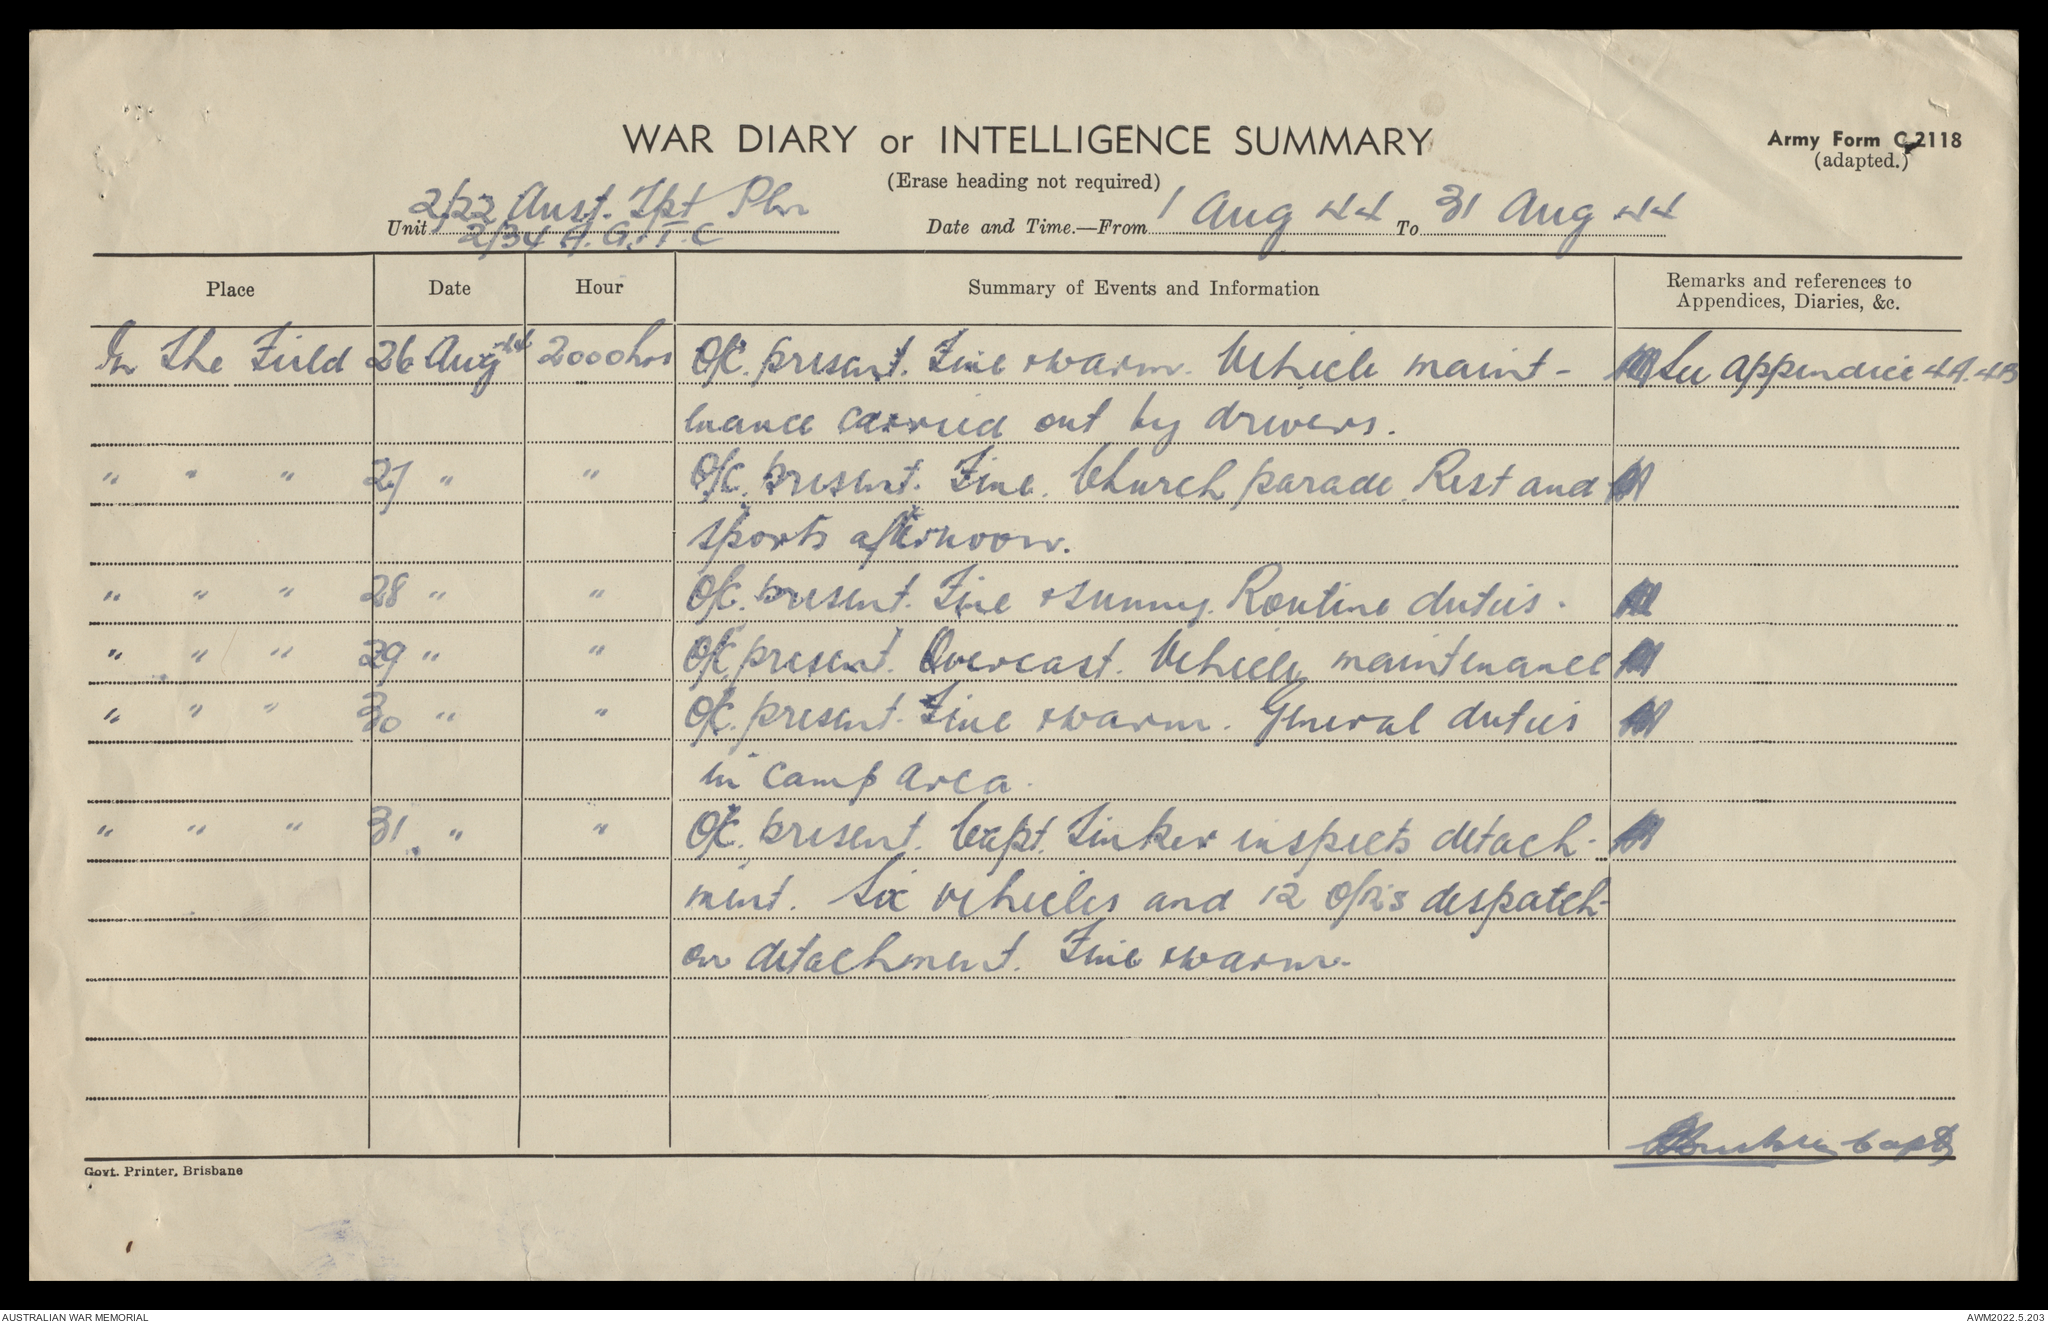 WAR DIARY or INTELLIGENCE SUMMARY
Army Form C.2118
(adapted.)
(Erase heading not required)
2/22 Aust. Tpt Pln
Unit 2/34 A.G.T.C
Date and Time.—From 1 Aug 44 To 31 Aug 44
Place Date Hour Summary of Events and Information Remarks and references to
Appendices, Diaries, &c.
In the Field 26 Aug 44 2000hrs O/C. present. Fine & warm. Vehicle maint- See appendice 4A. 4B
enance carried out by drivers.
" " " 27 " " O/C. present. Fine. Church parade. Rest and
sports afternoon.
" " " 28 " " O/C. present. Fine & sunny. Routine duties.
" " " 29 " " O/C. present. Overcast. Vehicle maintenance
" " " 30 " " O/C. present. Fine & warm. General duties
in camp area.
" " " 31 " " O/C. present. Capt. Tinker inspects detach-
ment. Six vehicles and 12 O/R's despatch-
on detachment. Fine & warm.
Capt
Govt. Printer, Brisbane
AUSTRALIAN WAR MEMORIAL
AWM2022.5.203